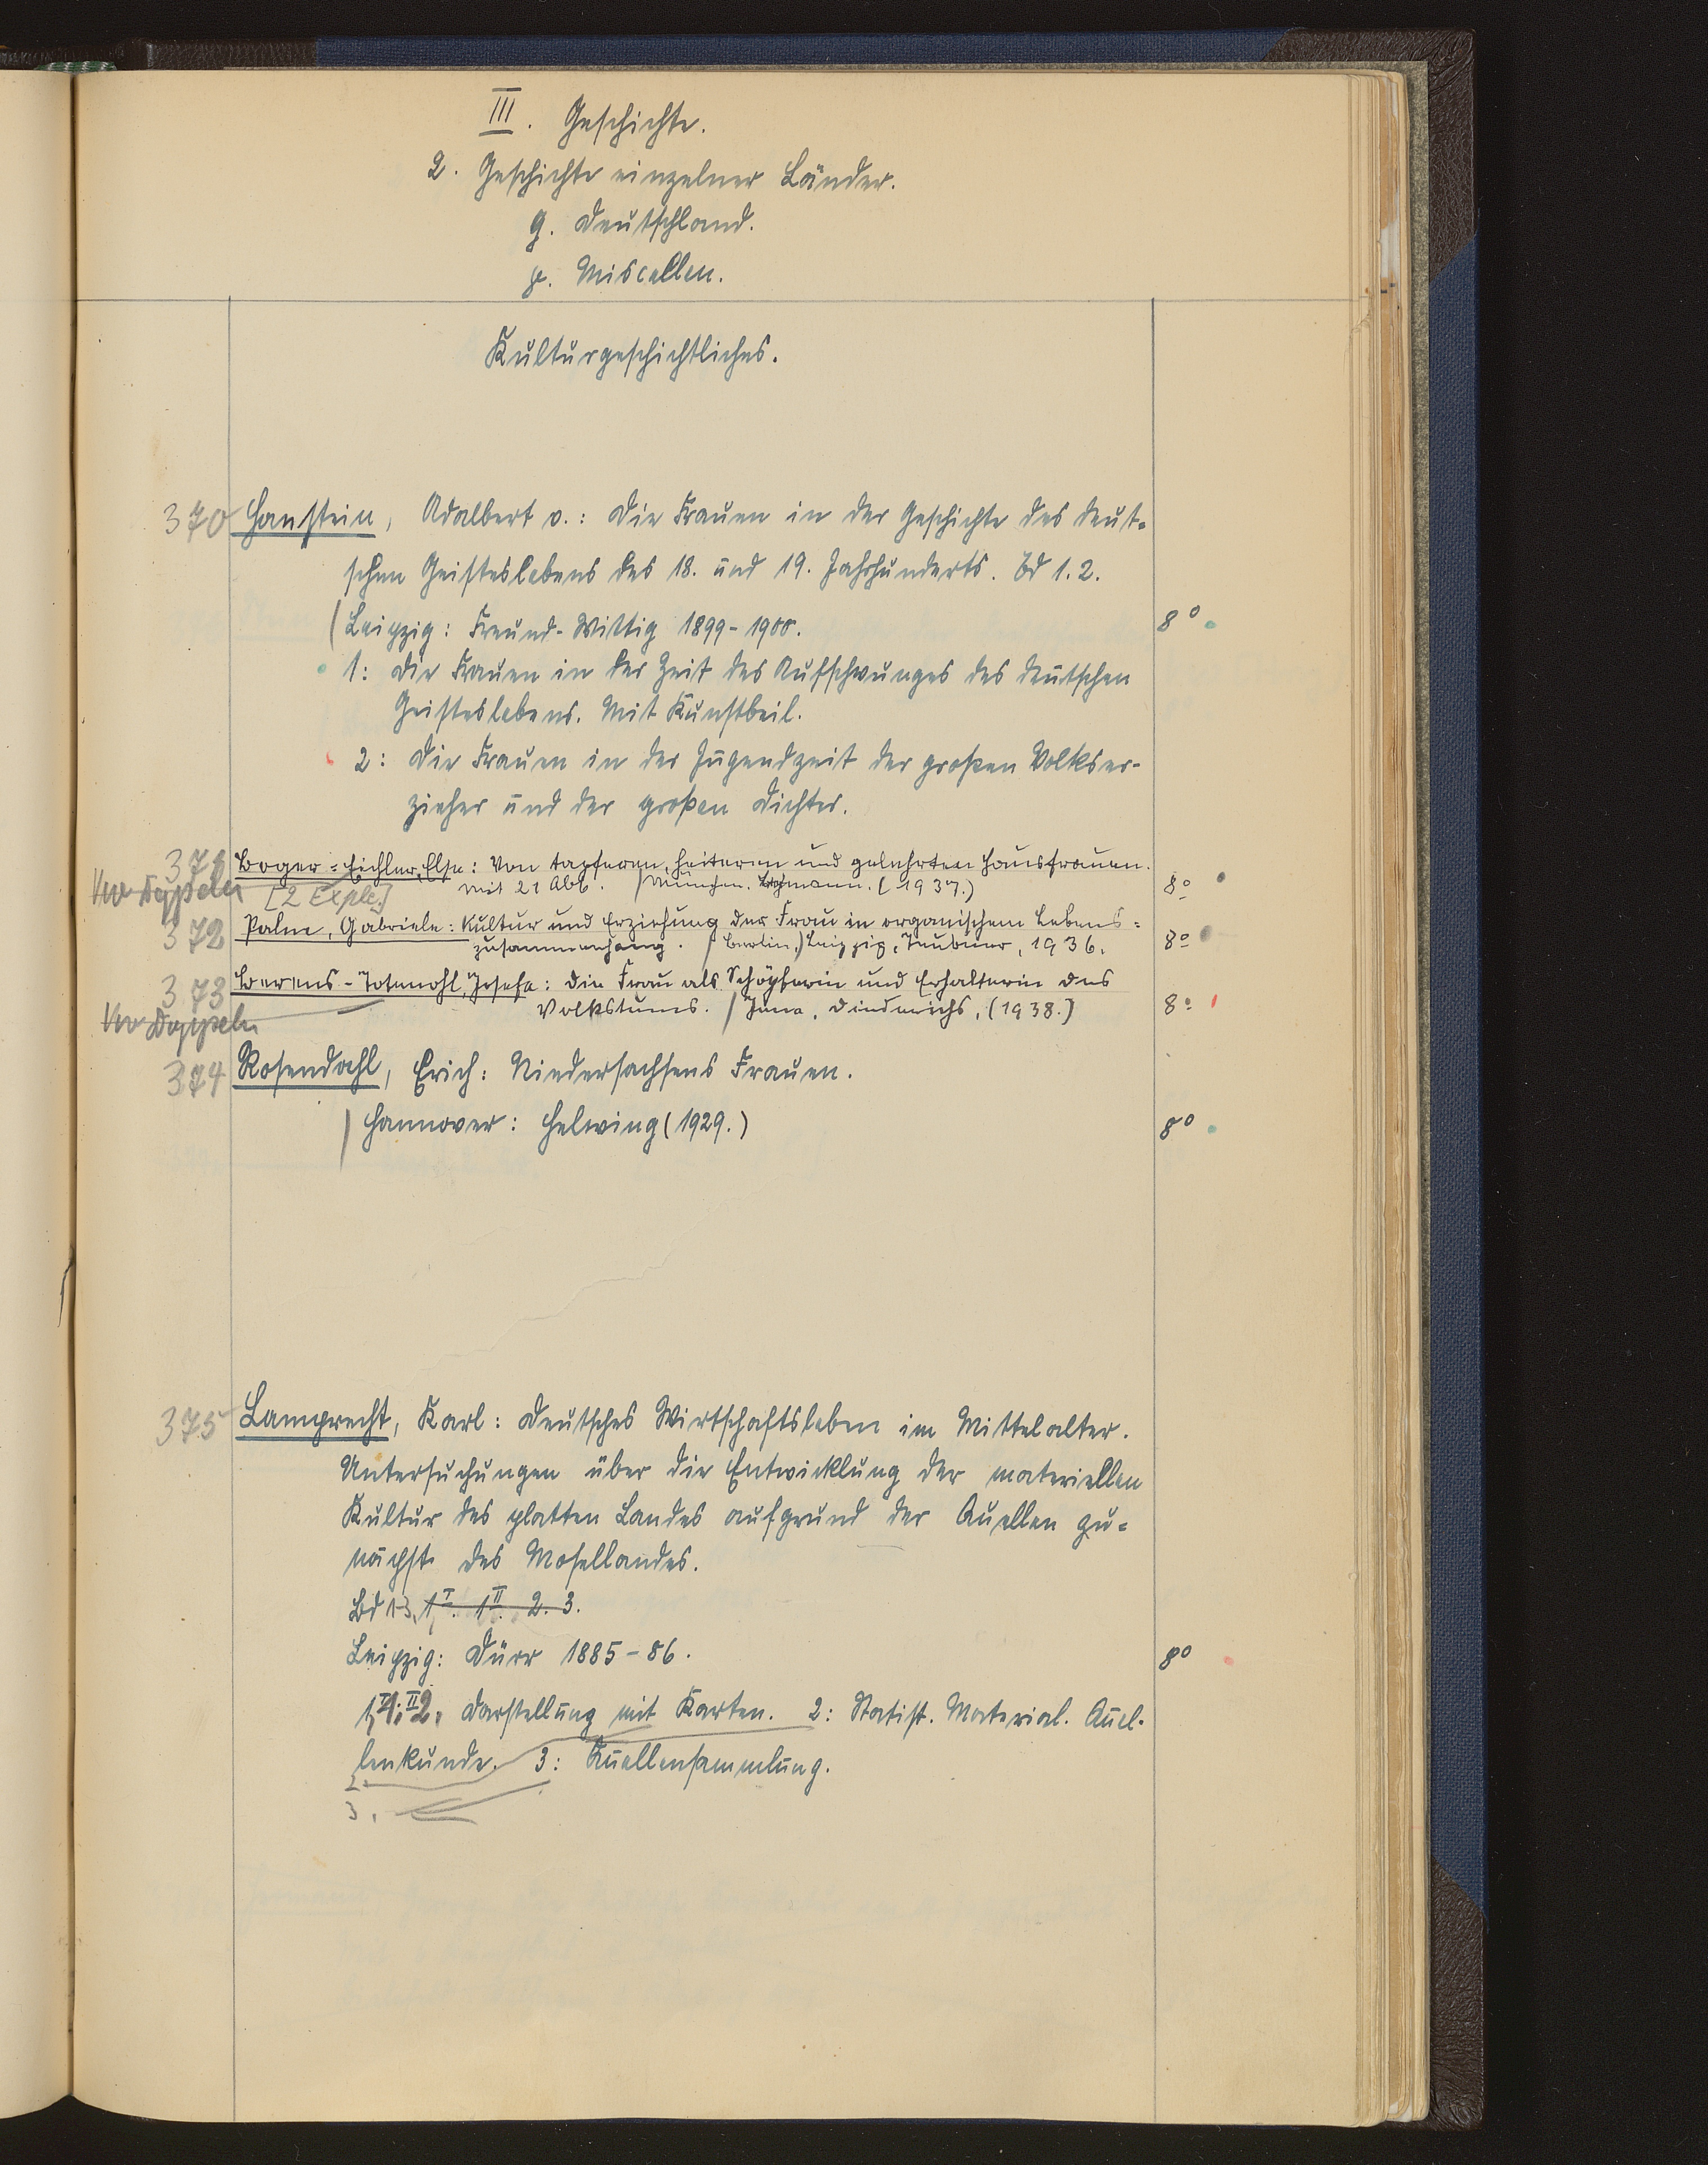 III. Geschichte.
2. Geschichte einzelner Länder.
g. Deutschland.
y. Miscellen.
Kulturgeschichtliches.
370 Hanstein, Adalbert v.: Die Frauen in der Geschichte des deut-
schen Geisteslebens des 18. und 19. Jahrhunderts. Bd 1.2.
Leipzig: Freund-Wittig 1899-1900. 8°
1: Die Frauen in der Zeit des Aufschwunges des deutschen
Geisteslebens. Mit Kunstbeil.
2: Die Frauen in der Jugendzeit der großen Volkser-
zieher und der großen Dichter.
371 Boger=Eichler, Else: Von tapferen, heiteren und gelehrten Hausfrauen.
Mit 21 Abb. / München. Lehmann. (1937.) 8°
[2 Expl.]
372 Palm, Gabriele: Kultur und Erziehung der Frau in organischem Lebens=
zusammenhang. / (Berlin,) Leipzig, Teubner, 1936. 8°
373 Berens-Totenohl, Josefa: Die Frau als Schöpferin und Erhalterin des
Volkstums. / Jena, Diederichs, (1938.) 8°
374 Rosendahl, Erich: Niedersachsens Frauen.
Hannover: Helwing (1929.) 8°
375 Lamprecht, Karl: Deutsches Wirtschaftsleben im Mittelalter.
Untersuchungen über die Entwicklung der materiellen
Kultur des platten Landes aufgrund der Quellen zu=
nächst des Mosellandes.
Bd 1-3, 1 I. 1 II. 2. 3.
Leipzig: Dürr 1885-86. 8°
1,I. 1,II. Darstellung mit Karten. 2: Statist. Material. Quel-
lenkunde. 3: Quellensammlung.
2.
3.